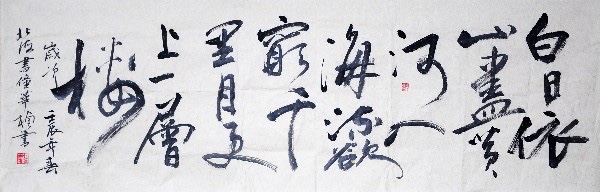 白日依
山盡黄
河入
海流欲
窮千
里目更
上一層
樓
歲次壬辰年春
北海書僮華書